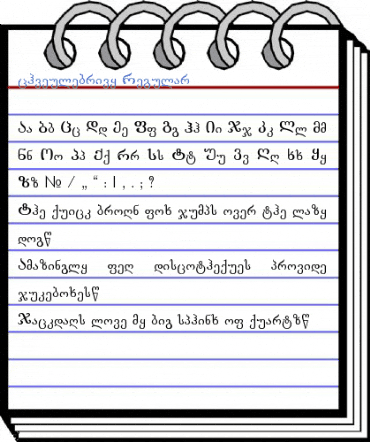 ცჰვეულებრივყ რეგულარ
აა ბბ ცც დდ ეე ფფ გგ ჰჰ იი ჯჯ კკ ლლ მმ
ნნ ოო პპ ქქ რრ სს ტტ უუ ვვ ღღ ხხ ყყ
ზზ № / „ “ : | , . ; ?
ტჰე ქუიცკ ბროღნ ფოხ ჯუმპს ოვერ ტჰე ლაზყ
დოგწ
ამაზინგლყ ფეღ დისცოტჰექუეს პროვიდე
ჯუკებოხესწ
ჯაცკდაღს ლოვე მყ ბიგ სპჰინხ ოფ ქუარტზწ